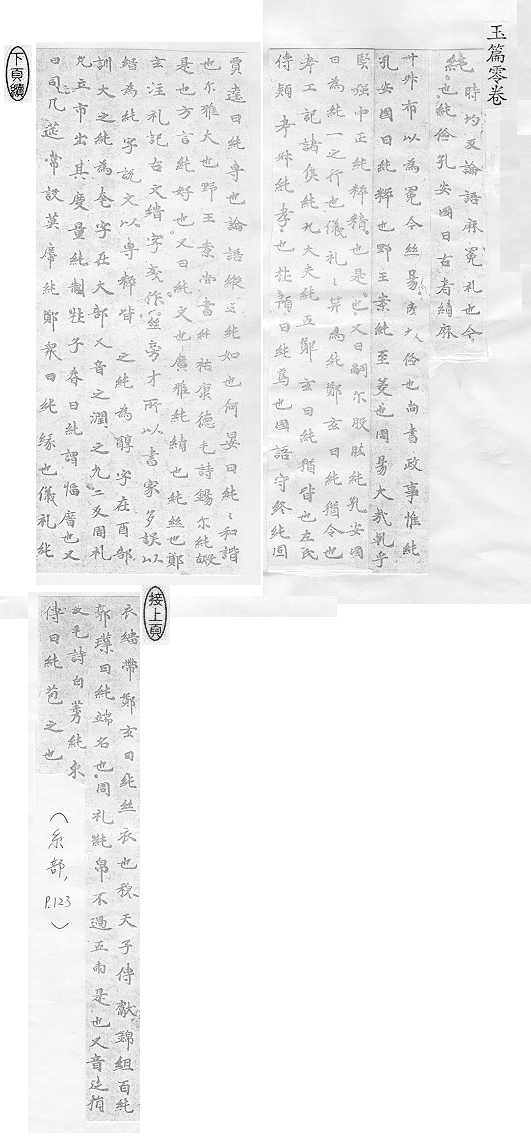 玉篇零卷
純 時均反論語麻冕礼也今
也純儉孔安國曰古者績麻
卅升布以為冕今絲易成故儉也尚書政事惟純
孔安國曰純粹也野王案純至美也周易大哉乹乎
對剛中正純粹精也是也又曰嗣尒股肱純孔安國
曰為純一之行也儀礼二筭為純鄭玄曰純猶全也
考工記諸侯純九大夫純五鄭玄曰純猶皆也左氏
傳潁考叔純孝也杜預曰純篤也國語守終純固
賈逵曰純專也論語縱之純如也何晏曰純純和諧
也尒雅大也野王案尚書 祐康德毛詩錫尒純嘏
是也方言純好也又曰純文也廣雅純緒也純絲也鄭
玄注礼記古文緇字或作 旁才所以書家多誤以
緇為純字說文以專粹皆 之純為醇字在酉部
訓大之純為奄字在大部又音之潤之九二反周礼
凢立市出其度量純制壯子春曰純謂幅廣也又
曰司几莚常設莫席純鄭衆曰純緣也儀礼純
下頁續
接上頁
衣緇帶鄭玄曰純絲衣也穆天子傳獻錦組百純
郭璞曰純端名也周礼純帛不過五兩是也又音之
反毛詩白茅純束
傳曰純苞之也
(糸部, P.123)